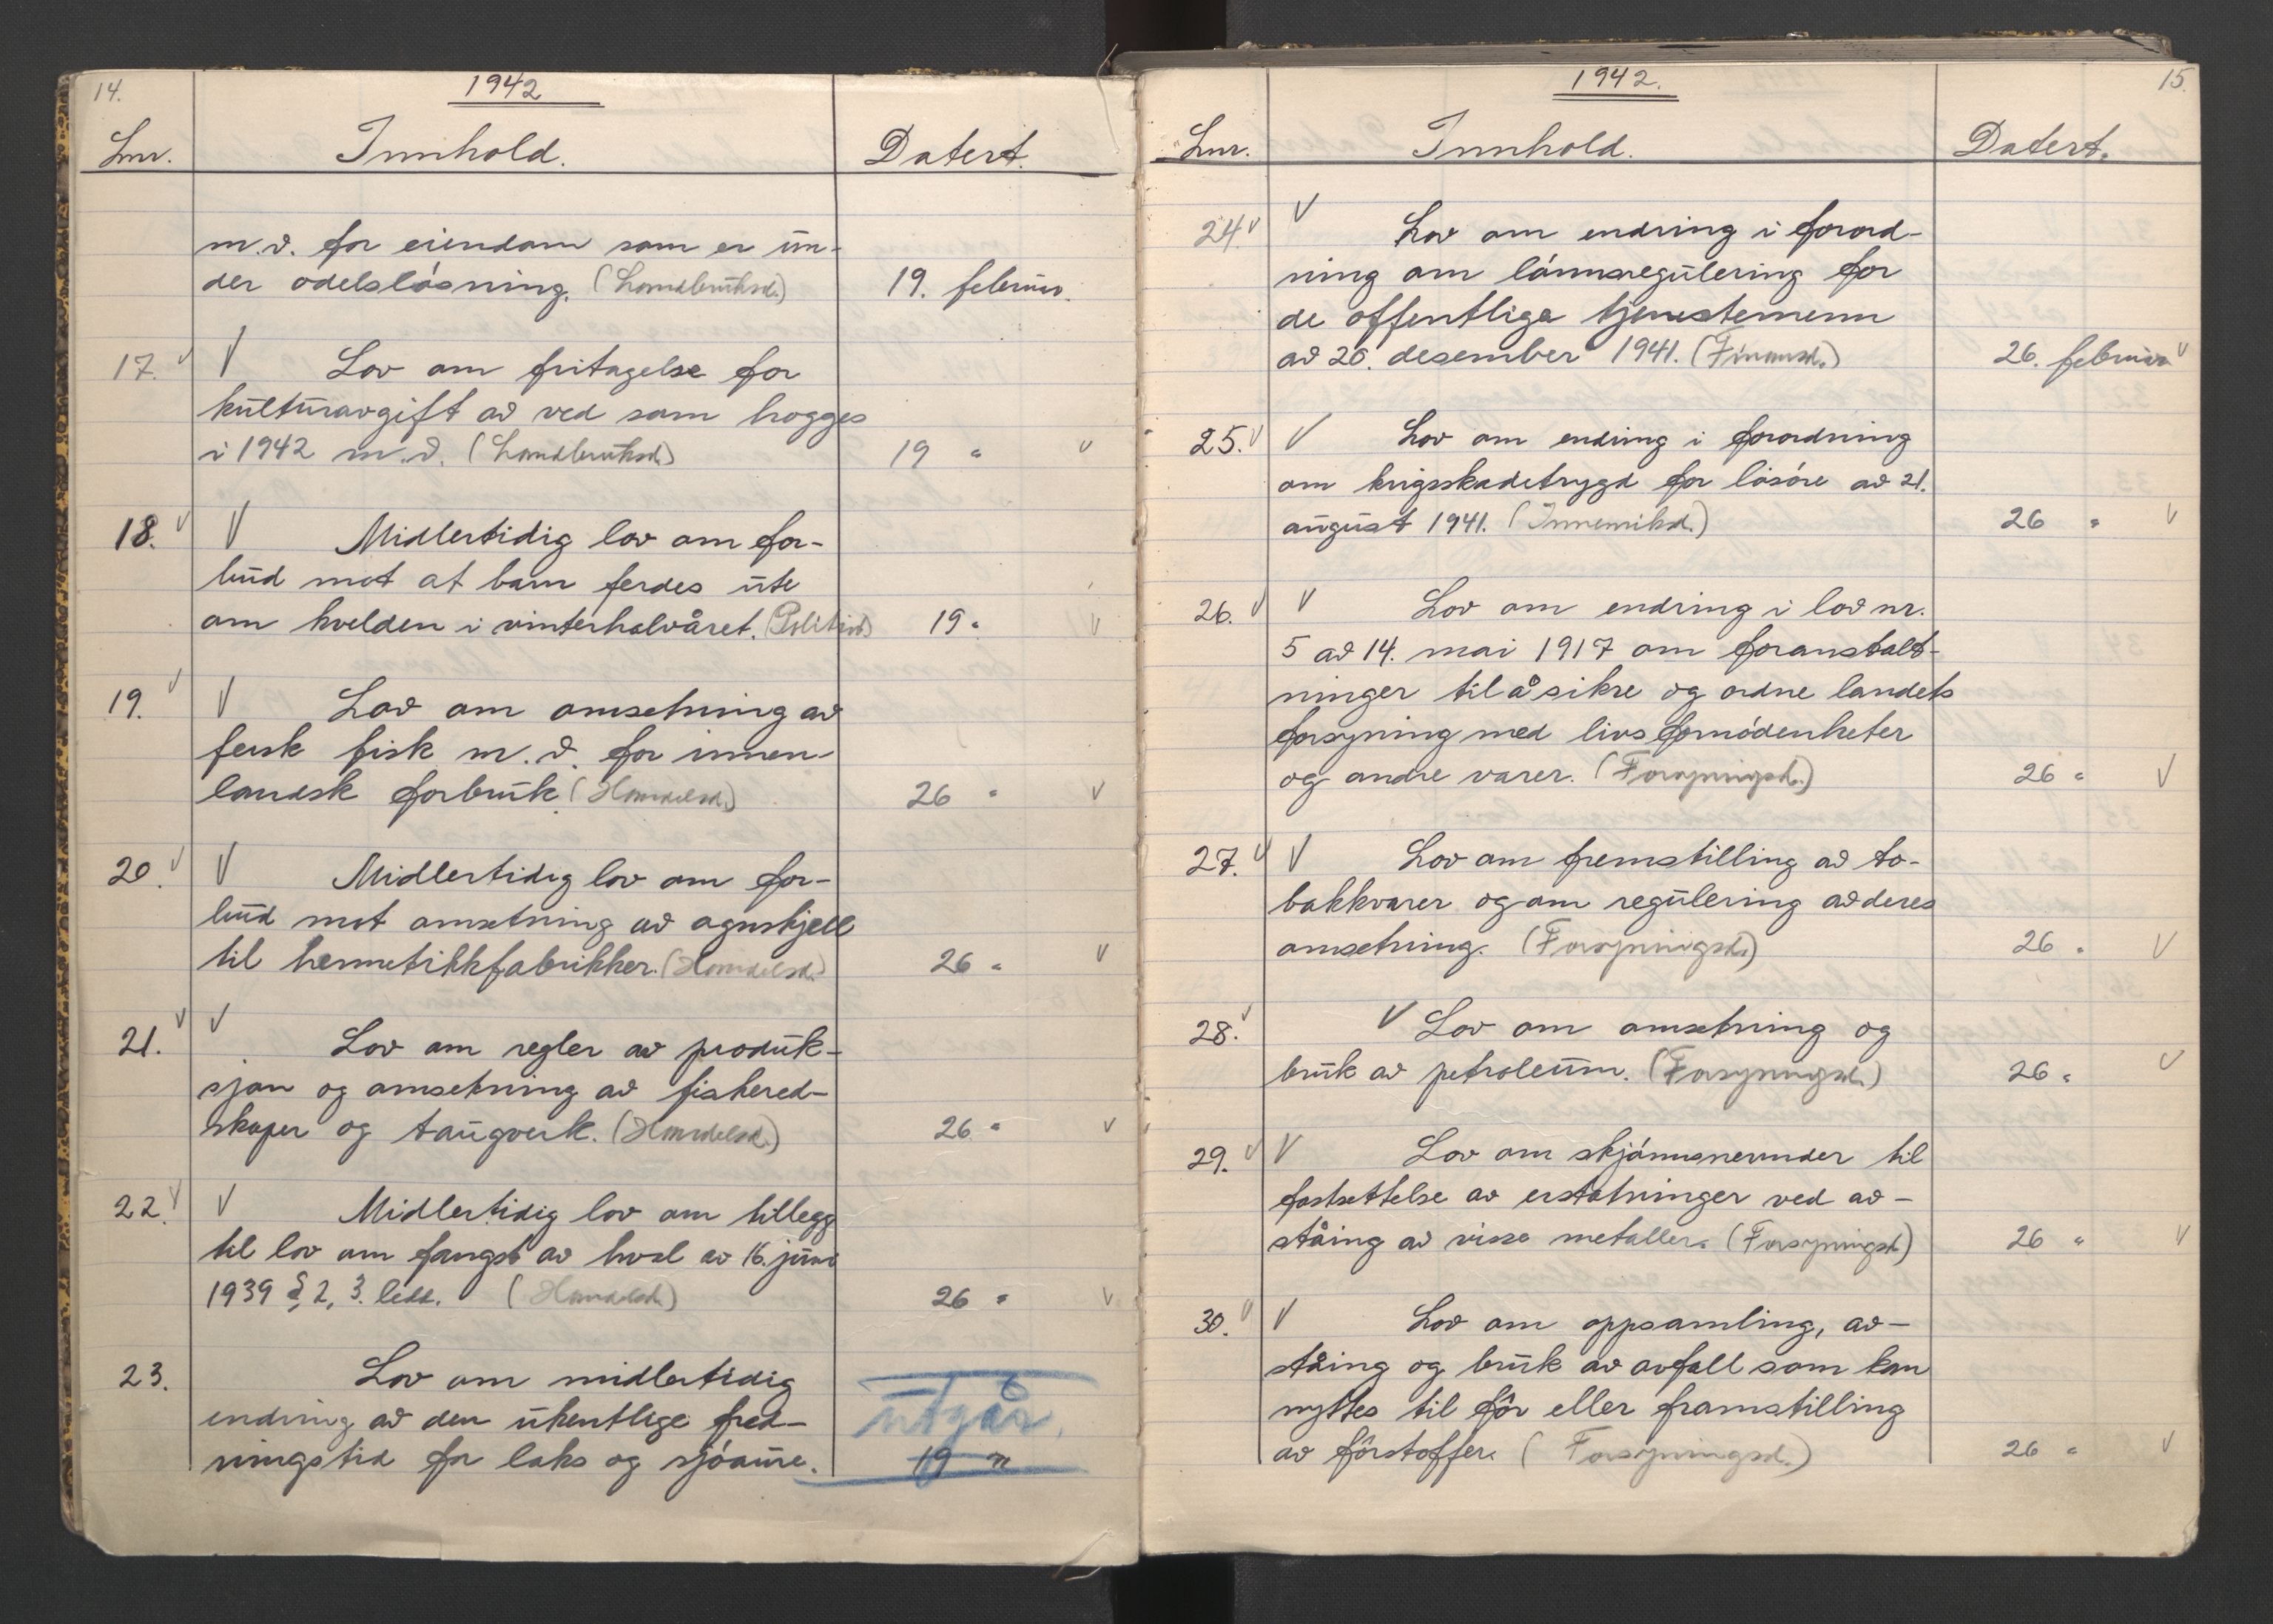 14.
1942
Lnr. Innhold. Datert.
m.v. for eiendom som er un-
der odelsløsning. (Landbruksd.) 19. februar.
17. V V Lov om fritagelse for
kulturavgift av ved som hogges
i 1942 m.v. (Landbruksd.) 19 " V
18. V V Midlertidig lov om for-
bud mot at barn ferdes ute
om kvelden i vinterhalvåret. (Politid.) 19 " V
19. V V Lov om omsetning av
fersk fisk m.v. for innen-
landsk forbruk (Handelsd.) 26 " V
20. V V Midlertidig lov om for-
bud mot omsetning av agnskjell
til hermetikkfabrikker. (Handelsd.) 26 " V
21. V V Lov om regler av produk-
sjon og omsetning av fiskered-
skaper og taugverk. (Handelsd.) 26 " V
22. V V Midlertidig lov om tillegg
til lov om fangst av hval av 16. juni
1939 § 2, 3. ledd. (Handelsd.) 26 " V
23. Lov om midlertidig
endring av den ukentlige fred- utgår.
ningstid for laks og sjøaure. 19 "
15.
1942.
Lnr. Innhold. Datert.
24. V V Lov om endring i forord-
ning om lønnsregulering for
de offentlige tjenestemenn
av 20. desember 1941. (Finansd.) 26. februar V
25. V V Lov om endring i forordning
om krigsskadetrygd for løsøre av 21.
august 1941. (Innenriksd.) 26 " V
26. V V Lov om endring i lov nr.
5 av 14. mai 1917 om foranstalt-
ninger til å sikre og ordne landets
forsyning med livsfornødenheter
og andre varer. (Forsyningsd.) 26 " V
27. V V Lov om fremstilling av to-
bakkvarer og om regulering av deres
omsetning. (Forsyningsd.) 26 " V
28. V V Lov om omsetning og
bruk av petroleum. (Forsyningsd.) 26 " V
29. V V Lov om skjønnsnevnder til
fastsettelse av erstatninger ved av-
ståing av visse metaller. (Forsyningsd.) 26 " V
30. V V Lov om oppsamling, av-
ståing og bruk av avfall som kan
nyttes til fôr eller framstilling
av fôrstoffer. (Forsyningsd.) 26 " V